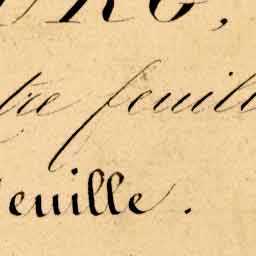 tre feuill
euille.